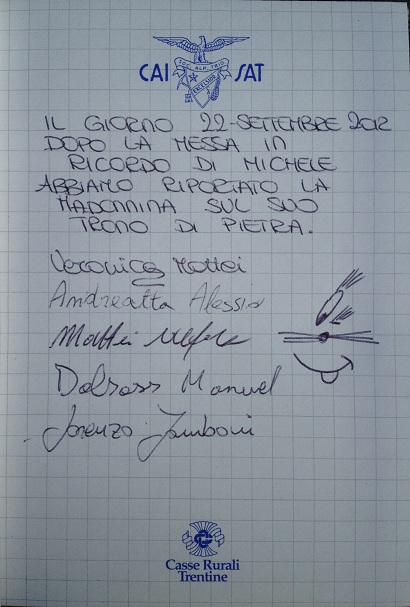 CAI SAT
SOC. ALP. TRID.
EXCELSIOR
IL GIORNO 22-SETTEMBRE 2012
DOPO LA MESSA IN
RICORDO DI MICHELE
ABBIAMO RIPORTATO LA
MADONNINA SUL SUO
TRONO DI PIETRA.
Veronica Mattei
Andreatta Alessio
Mattei
Manuel
Lorenzo Zamboni
Casse Rurali
Trentine